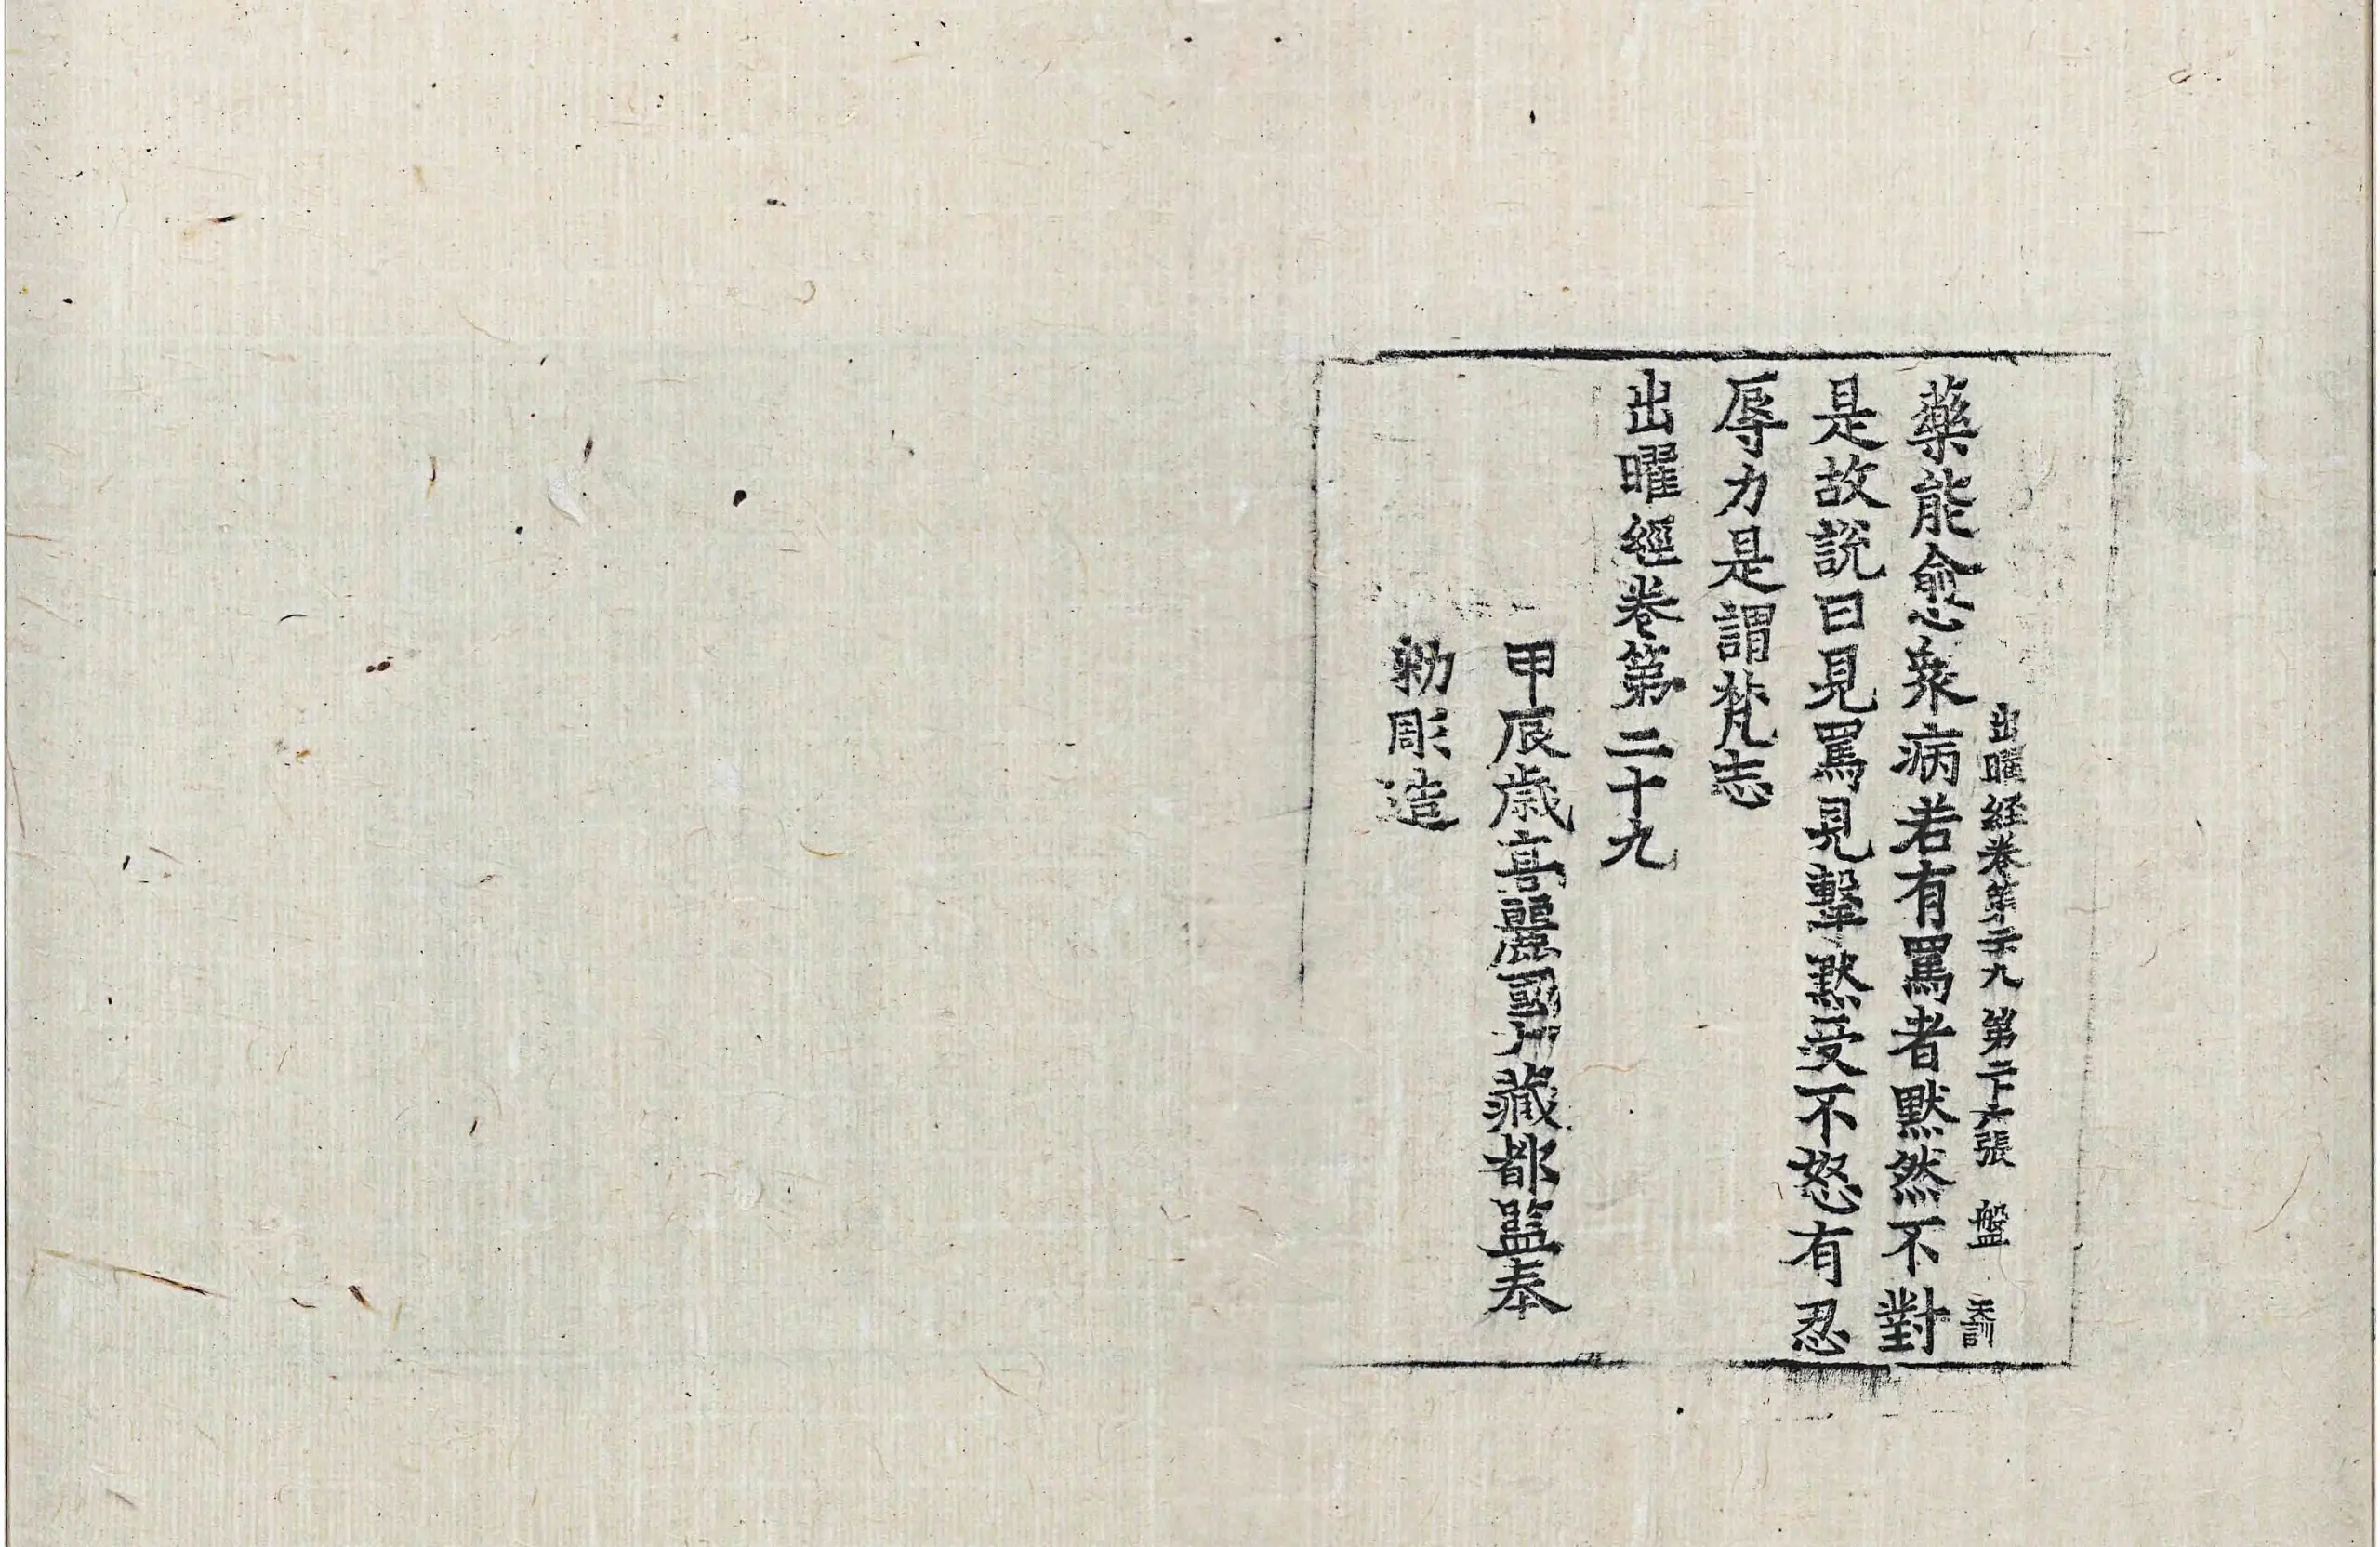 出曜経卷第二十九 第二十六張 盤 天訓
藥能愈衆病若有罵者默然不對
是故説曰見罵見擊默受不怒有忍
辱力是謂梵志
出曜經卷第二十九
甲辰歳高麗國大藏都監奉
勅彫造